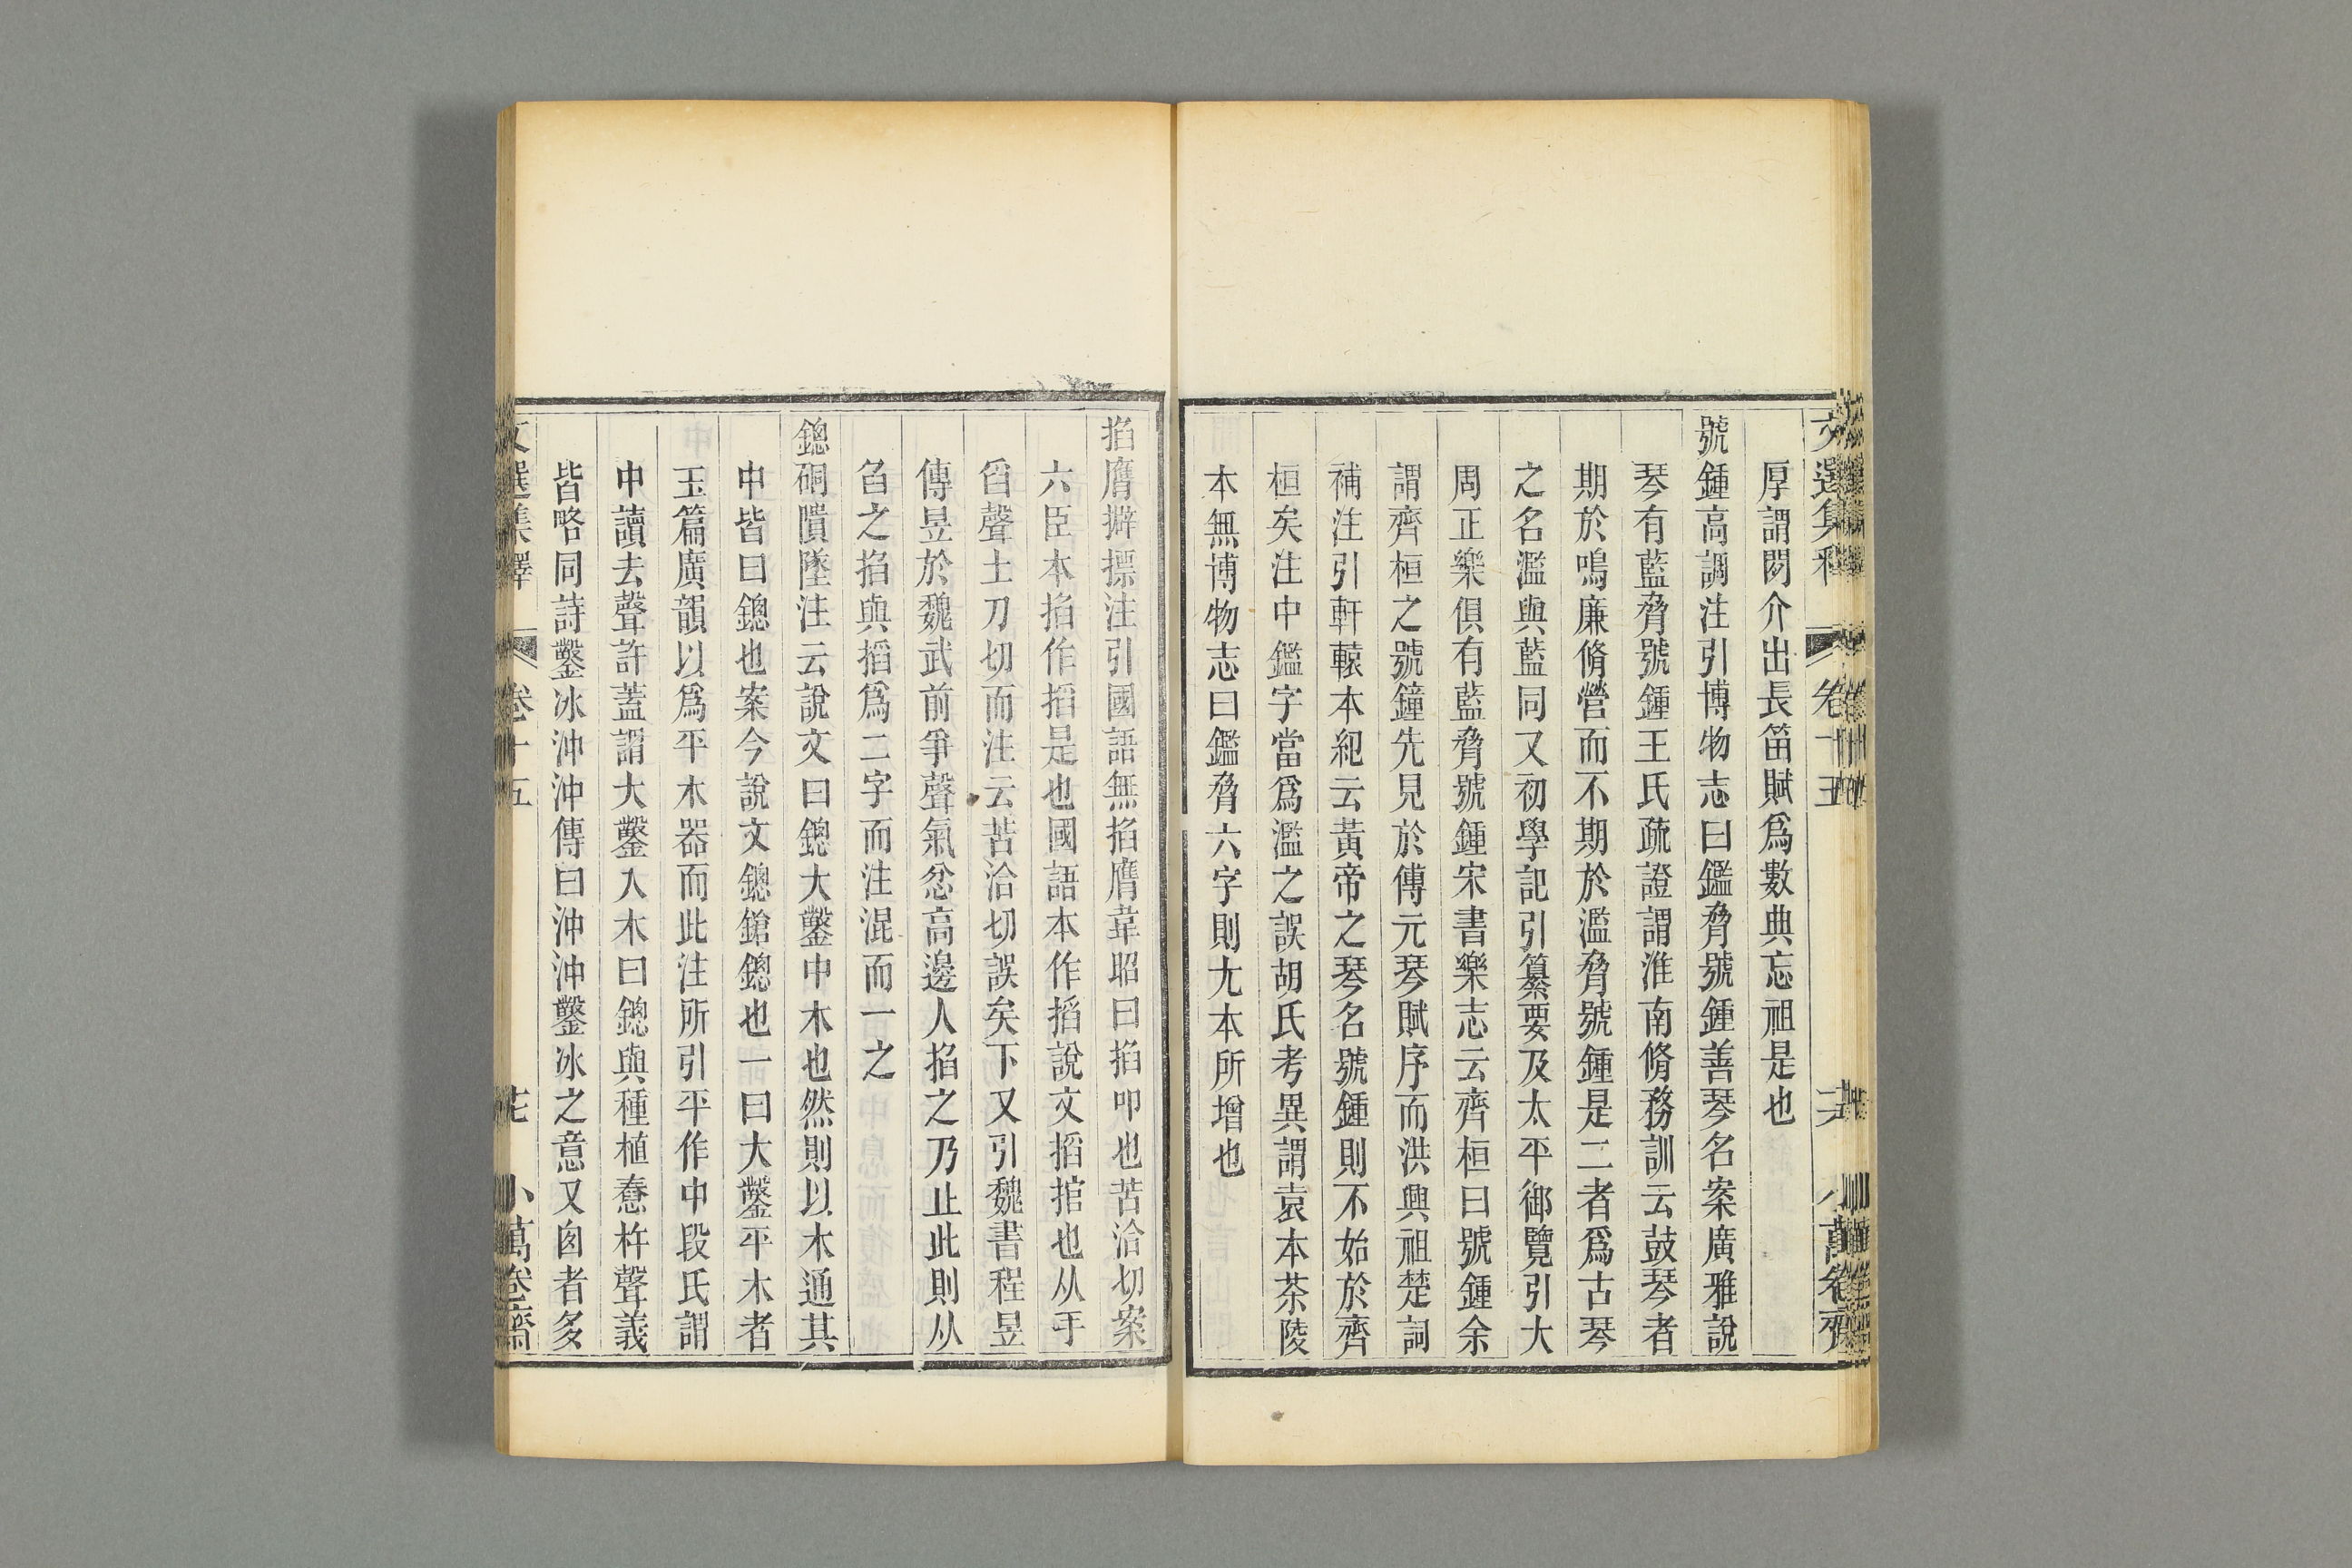 文選集釋 卷十五 小萬卷齋
厚謂閎介出長笛賦爲數典忘祖是也
號鍾高調注引博物志曰鑑脅號鍾善琴名案廣雅說
琴有藍脅號鍾王氏疏證謂淮南脩務訓云鼓琴者
期於鳴廉脩營而不期於濫脅號鍾是二者爲古琴
之名濫與藍同又初學記引纂要及太平御覽引大
周正樂俱有藍脅號鍾宋書樂志云齊桓曰號鍾余
謂齊桓之號鐘先見於傅元琴賦序而洪興祖楚詞
補注引軒轅本紀云黃帝之琴名號鍾則不始於齊
桓矣注中鑑字當爲濫之誤胡氏考異謂袁本茶陵
本無博物志曰鑑脅六字則尤本所增也
掐膺擗摽注引國語無掐膺韋昭曰掐叩也苦洽切案
六臣本掐作搯是也國語本作搯說文搯捾也从手
舀聲土刀切而注云苦洽切誤矣下又引魏書程昱
傳昱於魏武前爭聲氣忿高邊人掐之乃止此則从
臽之掐與搯爲二字而注混而一之
鏓硐隤墜注云說文曰鏓大鑿中木也然則以木通其
中皆曰鏓也案今說文鏓鎗鏓也一曰大鑿平木者
玉篇廣韻以爲平木器而此注所引平作中段氏謂
中讀去聲許蓋謂大鑿入木曰鏓與種植舂杵聲義
皆略同詩鑿冰沖沖傳曰沖沖鑿冰之意又囪者多
文選集釋 卷十五 小萬卷齋